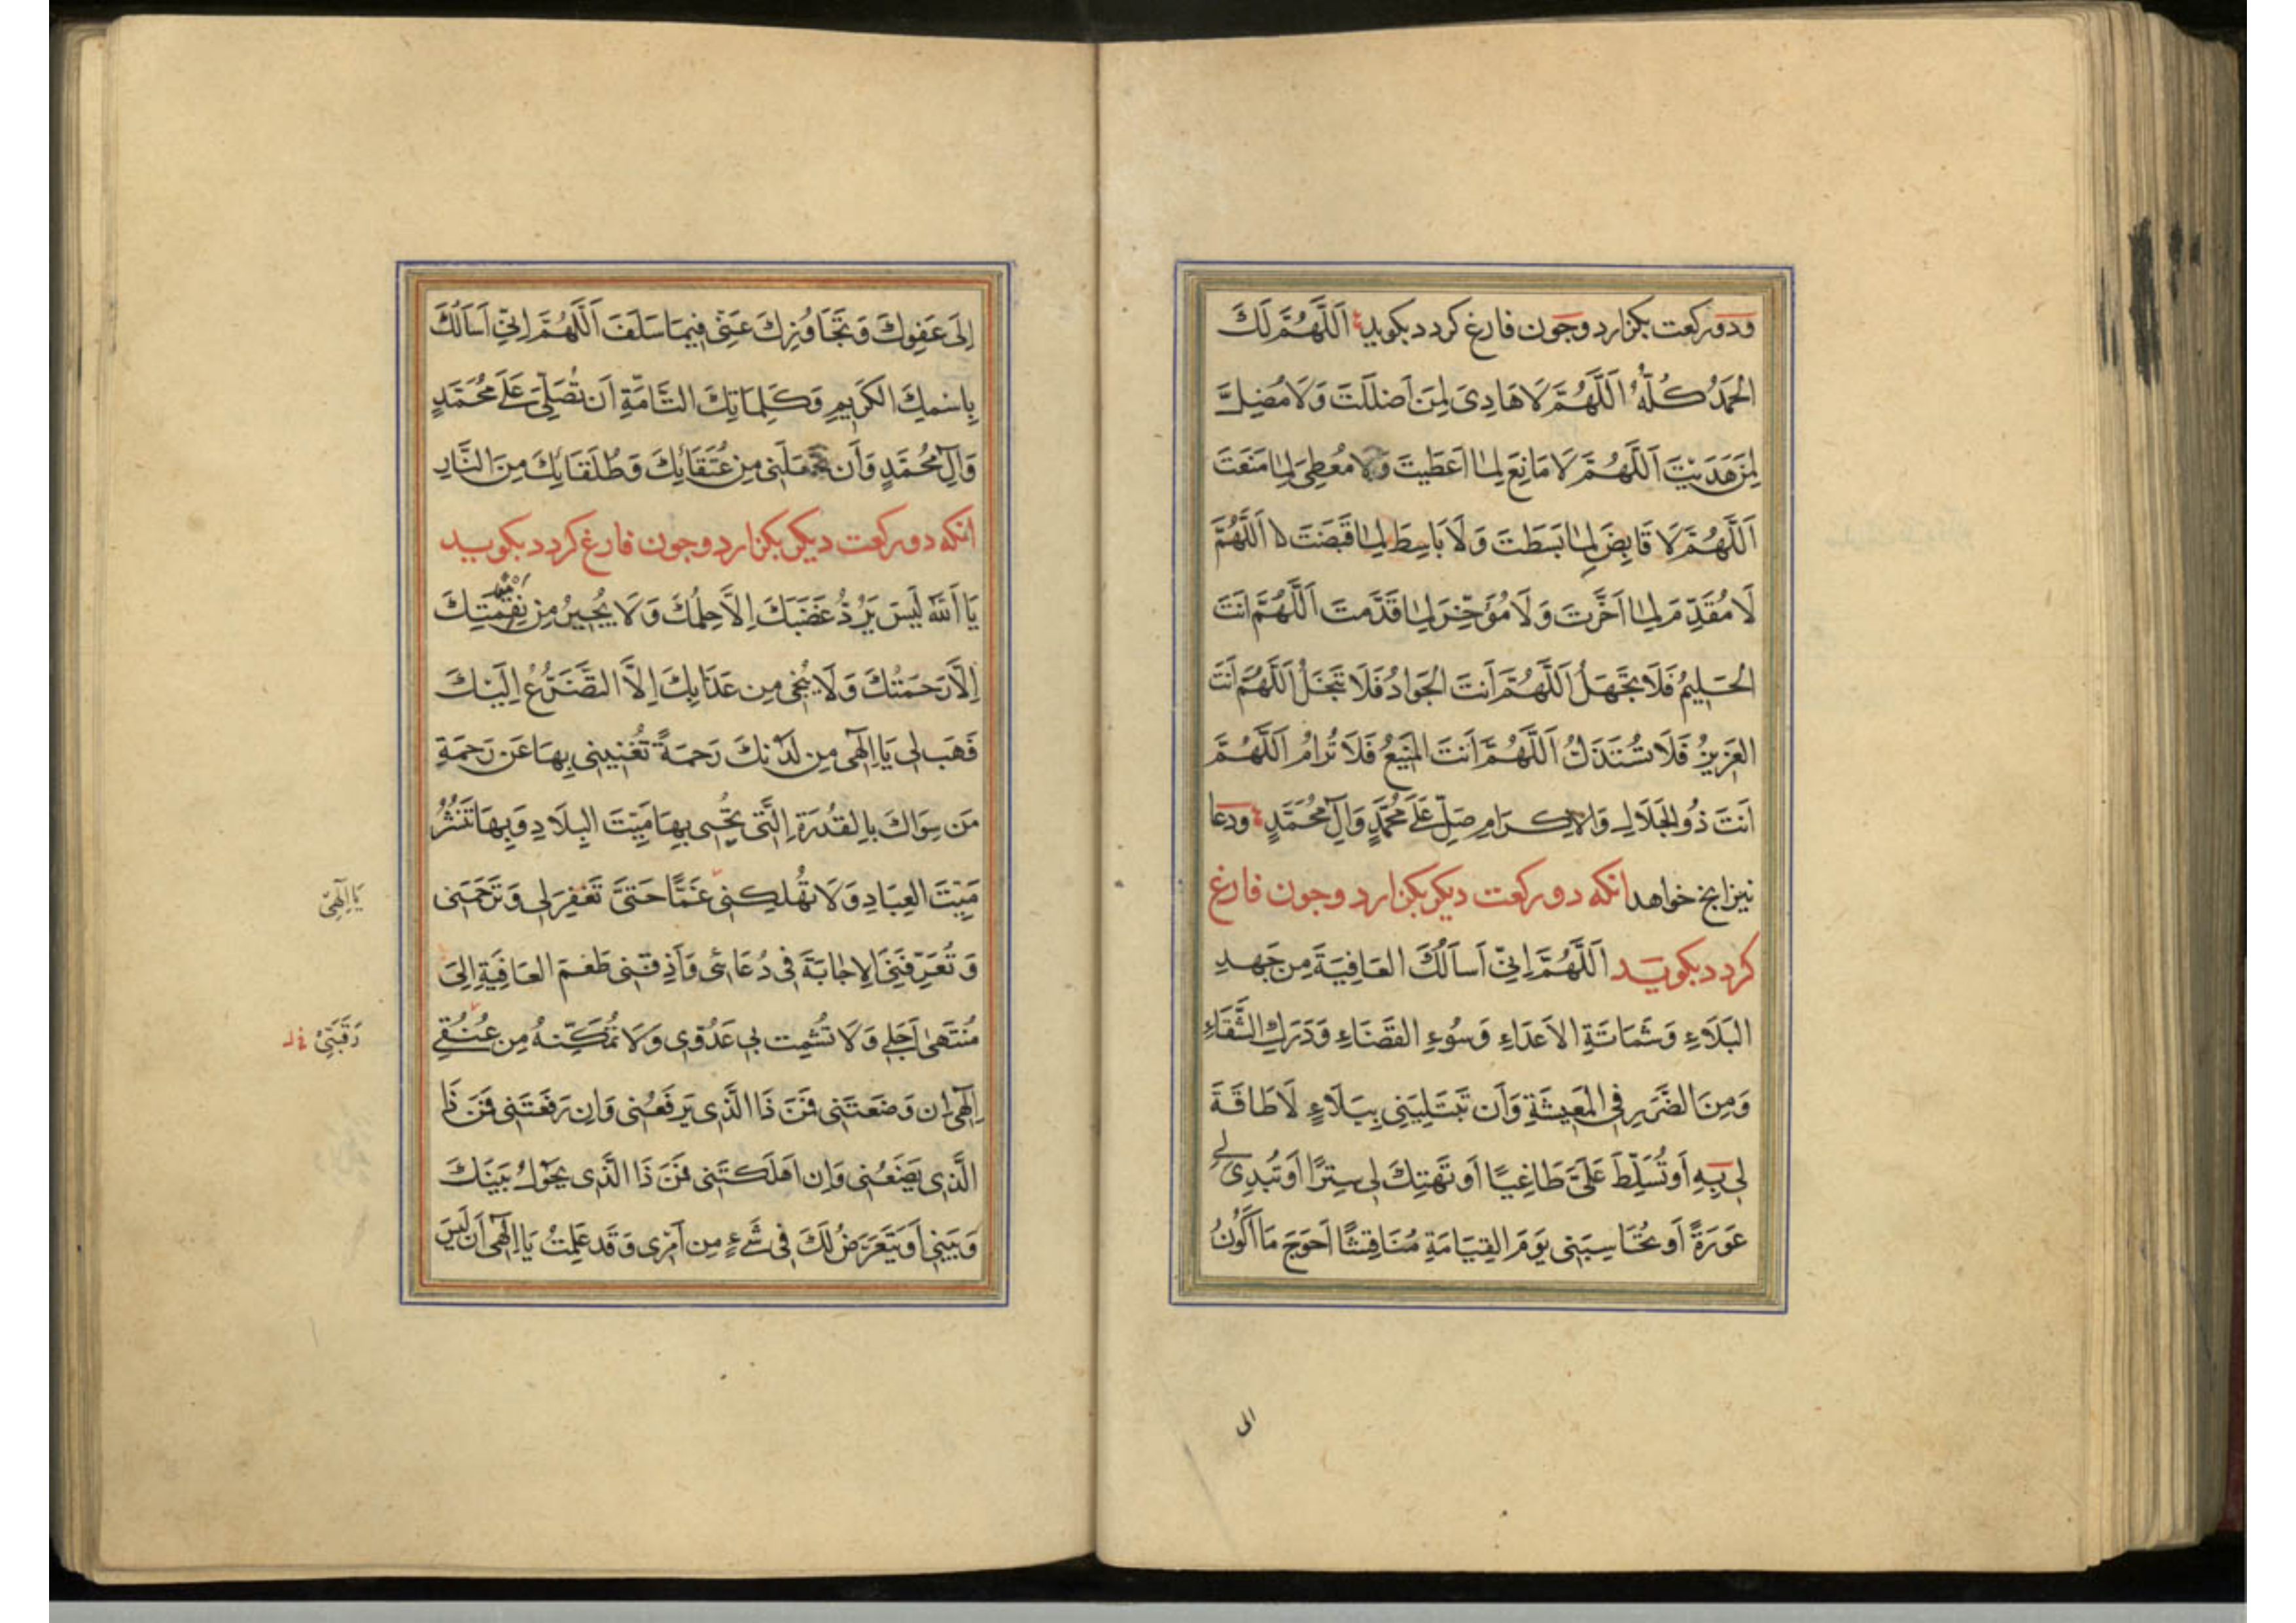 ودو رکعت بکزارد وجون فارغ کردد بکوید اَللَّهُمَّ لَكَ
الْحَمْدُ كُلُّهُ اَللَّهُمَّ لَا هَادِىَ لِمَنْ اَضْلَلْتَ وَلَا مُضِلَّ
لِمَنْ هَدَيْتَ اَللَّهُمَّ لَا مَانِعَ لِمَا اَعْطَيْتَ وَلَا مُعْطِىَ لِمَا مَنَعْتَ
اَللَّهُمَّ لَا قَابِضَ لِمَا بَسَطْتَ وَلَا بَاسِطَ لِمَا قَبَضْتَ اَللَّهُمَّ
لَا مُقَدِّمَ لِمَا اَخَّرْتَ وَلَا مُؤَخِّرَ لِمَا قَدَّمْتَ اَللَّهُمَّ اَنْتَ
الْحَلِيمُ فَلَا تَجْهَلُ اَللَّهُمَّ اَنْتَ الْجَوَادُ فَلَا تَبْخَلُ اَللَّهُمَّ اَنْتَ
الْعَزِيزُ فَلَا تُسْتَذَلُّ اَللَّهُمَّ اَنْتَ الْمَنِيعُ فَلَا تُرَامُ اَللَّهُمَّ
اَنْتَ ذُو الْجَلَالِ وَالْاِكْرَامِ صَلِّ عَلَى مُحَمَّدٍ وَآلِ مُحَمَّدٍ ودعا
نیز انج خواهد انکه دو رکعت دیکر بکزارد وجون فارغ
کردد بکوید اَللَّهُمَّ اِنِّى اَسْاَلُكَ الْعَافِيَةَ مِنْ جَهْدِ
الْبَلَاءِ وَشَمَاتَةِ الْاَعْدَاءِ وَسُوءِ الْقَضَاءِ وَدَرَكِ الشَّقَاءِ
وَمِنَ الضَّرَرِ فِى الْمَعِيشَةِ وَاَنْ تَبْتَلِيَنِى بِبَلَاءٍ لَا طَاقَةَ
لِى بِهِ اَوْ تُسَلِّطَ عَلَىَّ طَاغِيًا اَوْ تَهْتِكَ لِى سِتْرًا اَوْ تُبْدِىَ لِى
عَوْرَةً اَوْ تُحَاسِبَنِى يَوْمَ الْقِيَامَةِ مُنَاقِشًا اَحْوَجَ مَا اَكُونُ
الى
اِلَى عَفْوِكَ وَتَجَاوُزِكَ عَنِّى فِيمَا سَلَفَ اَللَّهُمَّ اِنِّى اَسْاَلُكَ
بِاسْمِكَ الْكَرِيمِ وَكَلِمَاتِكَ التَّامَّةِ اَنْ تُصَلِّىَ عَلَى مُحَمَّدٍ
وَآلِ مُحَمَّدٍ وَاَنْ تَجْعَلَنِى مِنْ عُتَقَائِكَ وَطُلَقَائِكَ مِنَ النَّارِ
انکه دو رکعت دیکر بکزارد وجون فارغ کردد بکوید
يَا اَللهُ لَيْسَ يَرُدُّ غَضَبَكَ اِلَّا حِلْمُكَ وَلَا يُجِيرُ مِنْ نِقْمَتِكَ
اِلَّا رَحْمَتُكَ وَلَا يُنْجِى مِنْ عَذَابِكَ اِلَّا التَّضَرُّعُ اِلَيْكَ
فَهَبْ لِى يَا اِلَهِى مِنْ لَدُنْكَ رَحْمَةً تُغْنِينِى بِهَا عَنْ رَحْمَةِ
مَنْ سِوَاكَ بِالْقُدْرَةِ الَّتِى تُحْيِى بِهَا مَيِّتَ الْبِلَادِ وَبِهَا تَنْشُرُ
مَيِّتَ الْعِبَادِ وَلَا تُهْلِكْنِى غَمًّا حَتَّى تَغْفِرَ لِى وَتَرْحَمَنِى
يَا اِلَهِى
وَتُعَرِّفَنِى الْاِجَابَةَ فِى دُعَائِى وَاَذِقْنِى طَعْمَ الْعَافِيَةِ اِلَى
مُنْتَهَى اَجَلِى وَلَا تُشْمِتْ بِى عَدُوِّى وَلَا تُمَكِّنْهُ مِنْ عُنُقِى
رَقَبَتِى
اِلَهِى اِنْ وَضَعْتَنِى فَمَنْ ذَا الَّذِى يَرْفَعُنِى وَاِنْ رَفَعْتَنِى فَمَنْ ذَا
الَّذِى يَضَعُنِى وَاِنْ اَهْلَكْتَنِى فَمَنْ ذَا الَّذِى يَحُولُ بَيْنَكَ
وَبَيْنِى اَوْ يَتَعَرَّضُ لَكَ فِى شَىْءٍ مِنْ اَمْرِى وَقَدْ عَلِمْتُ يَا اِلَهِى اَنْ لَيْسَ